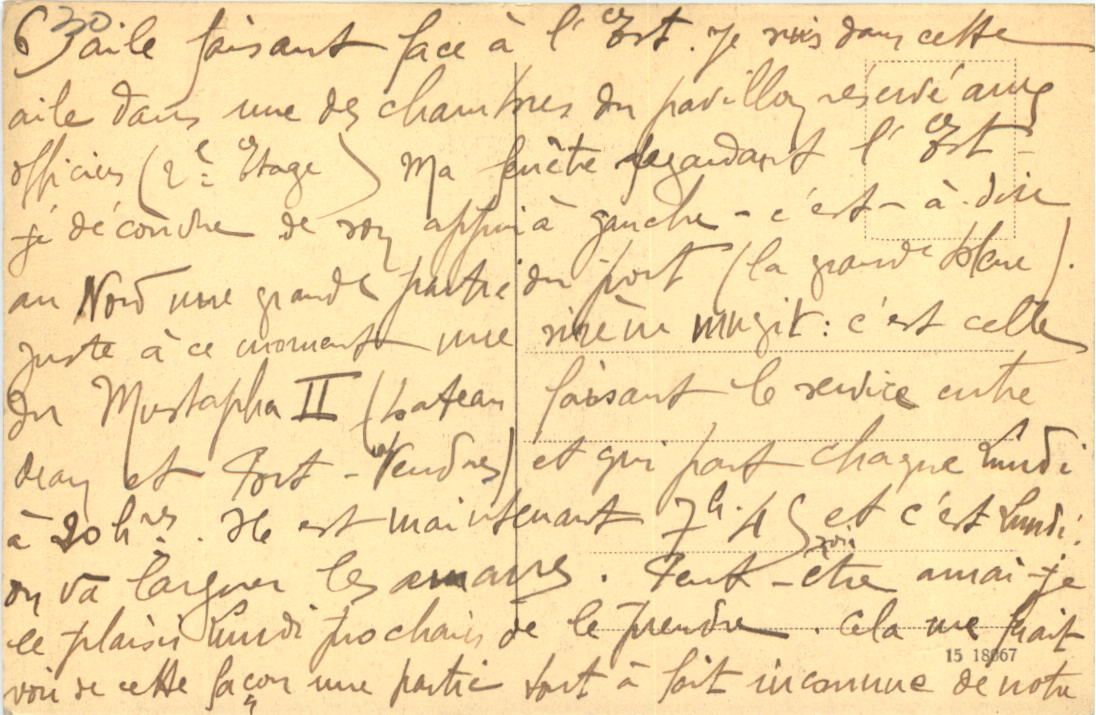 6) aile faisant face à l'Est. Je suis dans cette
aile dans une des chambres du pavillon réservé aux
officiers (2e Etage) Ma fenêtre regardant l'Est -
je découvre de son appui à gauche - c'est-à-dire
au Nord une grande partie du port (la grande bleue).
Juste à ce moment une sirène mugit : c'est celle
du Mustapha II (bateau faisant le service entre
Oran et Port-Vendres) et qui part chaque Lundi
à 20 hres. Il est maintenant 7h.45 et c'est Lundi :
on va larguer les amarres. Peut-être aurai-je
le plaisir Lundi prochain de le prendre. Cela me ferait
voir de cette façon une partie tout à fait inconnue de notre
15 18067